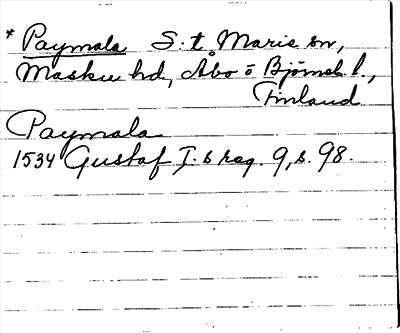 * Paymala S:t Marie sn,
Masku hd, Åbo o Björneb. l.,
Finland
Paymala
1534 Gustaf I:s reg. 9, s. 98.